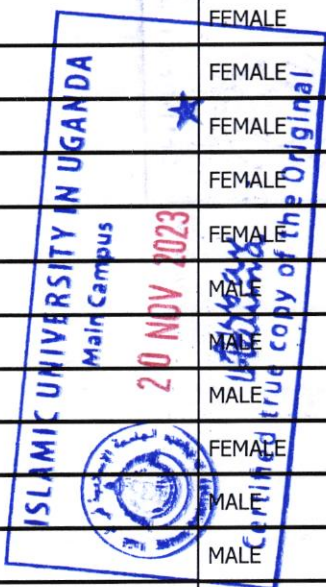 FEMALE
FEMALE
FEMALE
FEMALE
FEMALE
MALE
MALE
MALE
FEMALE
MALE
MALE
ISLAMIC UNIVERSITY IN UGANDA
Main Campus
20 NOV 2023
Certified true copy of the Original